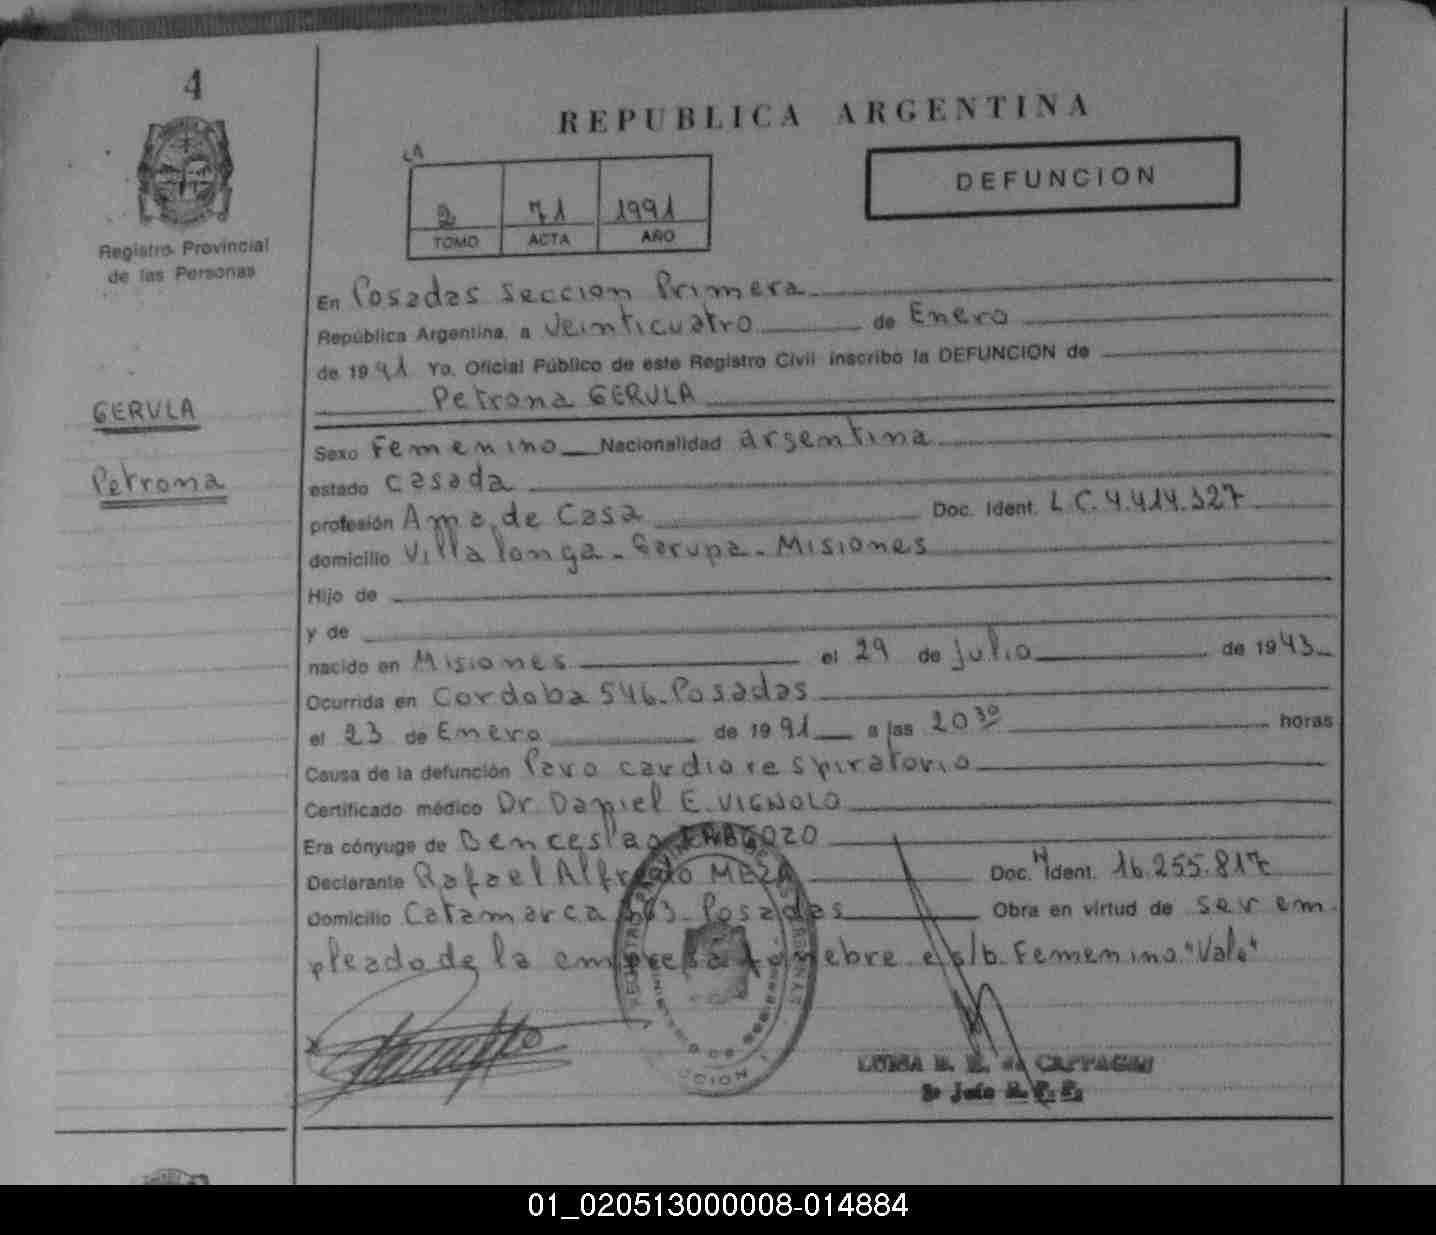 4
Registro Provincial
de las Personas
GERULA
Petrona
REPUBLICA ARGENTINA
LA
2 71 1991
TOMO ACTA AÑO
DEFUNCION
En Posadas seccion Primera
República Argentina, a Veinticuatro de Enero
de 1991 Yo, Oficial Público de este Registro Civil inscribo la DEFUNCION de
Petrona GERULA
Sexo Femenino Nacionalidad argentina
estado casada
profesión Ama de Casa Doc. Ident. L.C. 4.414.327
domicilio Villalonga - Garupa - Misiones
Hijo de
y de
nacido en Misiones el 29 de julio de 1943
Ocurrida en Cordoba 546 - Posadas
el 23 de Enero de 1991 a las 20 30 horas
Causa de la defunción Paro cardiorespiratorio
Certificado médico Dr. Daniel E. VIGNOLO
Era cónyuge de Benceslao
Declarante Rafael Alfredo MEZA Doc. N Ident. 16.255.817
Domicilio Catamarca Posadas Obra en virtud de ser em
pleado de la empresa funebre e s/b. Femenino. "Vale"
LUISA de
2º Jefe R. P. P.
01_020513000008-014884